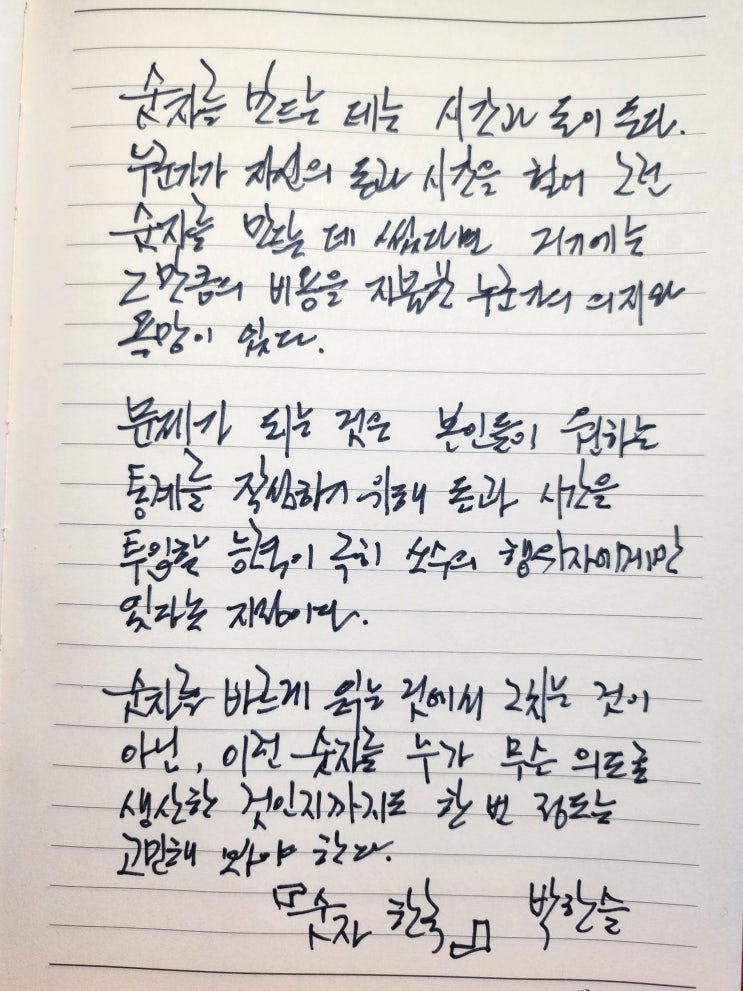 숫자를 만드는 데는 시간과 돈이 든다.
누군가가 자신의 돈과 시간을 헐어 그런
숫자를 만드는 데 썼다면 거기에는
그만큼의 비용을 지불한 누군가의 의지와
욕망이 있다.
문제가 되는 것은 본인들이 원하는
통계를 작성하기 위해 돈과 시간을
투입할 능력이 극히 소수의 행위자에게만
있다는 지점이다.
숫자를 바르게 읽는 것에서 그치는 것이
아닌, 이런 숫자를 누가 무슨 의도로
생산한 것인지까지도 한 번 정도는
고민해 봐야 한다.
『숫자 한국』 박한슬